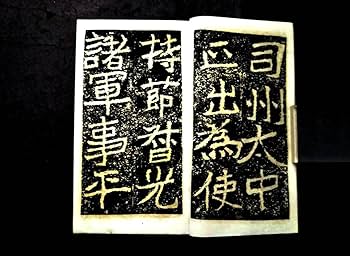 司州太中
正出為使
持節督光
諸軍事平